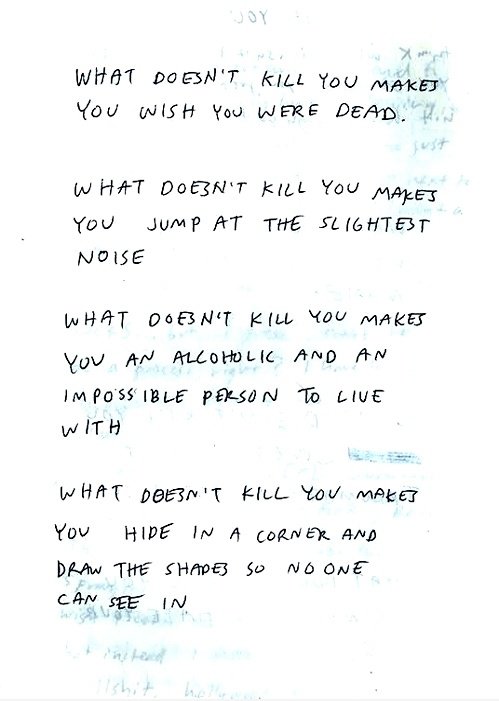 WHAT DOESN'T KILL YOU MAKES
YOU WISH YOU WERE DEAD.
WHAT DOESN'T KILL YOU MAKES
YOU JUMP AT THE SLIGHTEST
NOISE
WHAT DOESN'T KILL YOU MAKES
YOU AN ALCOHOLIC AND AN
IMPOSSIBLE PERSON TO LIVE
WITH
WHAT DOESN'T KILL YOU MAKES
YOU HIDE IN A CORNER AND
DRAW THE SHADES SO NO ONE
CAN SEE IN